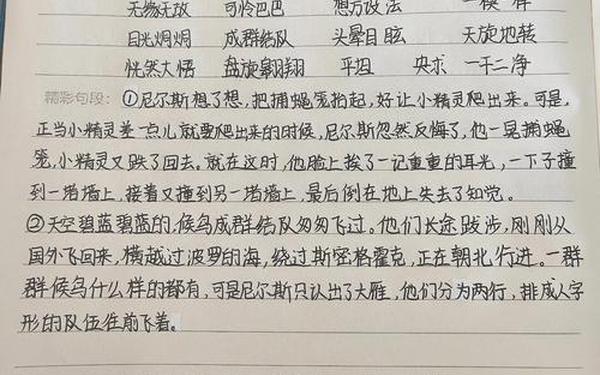 无缘无故 可怜巴巴 想方设法 一模一样
目光炯炯 成群结队 头晕目眩 天旋地转
恍然大悟 盘旋翱翔 平坦 央求 一干二净
精彩句段：①尼尔斯想了想，把捕蝇笼抬起，好让小精灵爬出来。可是，
正当小精灵差一点儿就要爬出来的时候，尼尔斯忽然反悔了，他一晃捕蝇
笼，小精灵又跌了回去。就在这时，他脸上挨了一记重重的耳光，一下子撞
到一堵墙上，接着又撞到另一堵墙上，最后倒在地上失去了知觉。
②天空碧蓝碧蓝的，候鸟成群结队匆匆飞过。他们长途跋涉，刚刚从
国外飞回来，横越过波罗的海，绕过斯密格霍克，正在朝北行进。一群
群候鸟什么样的都有，可是尼尔斯只认出了大雁，他们分为两行，排成人字
形的队伍往前飞着。